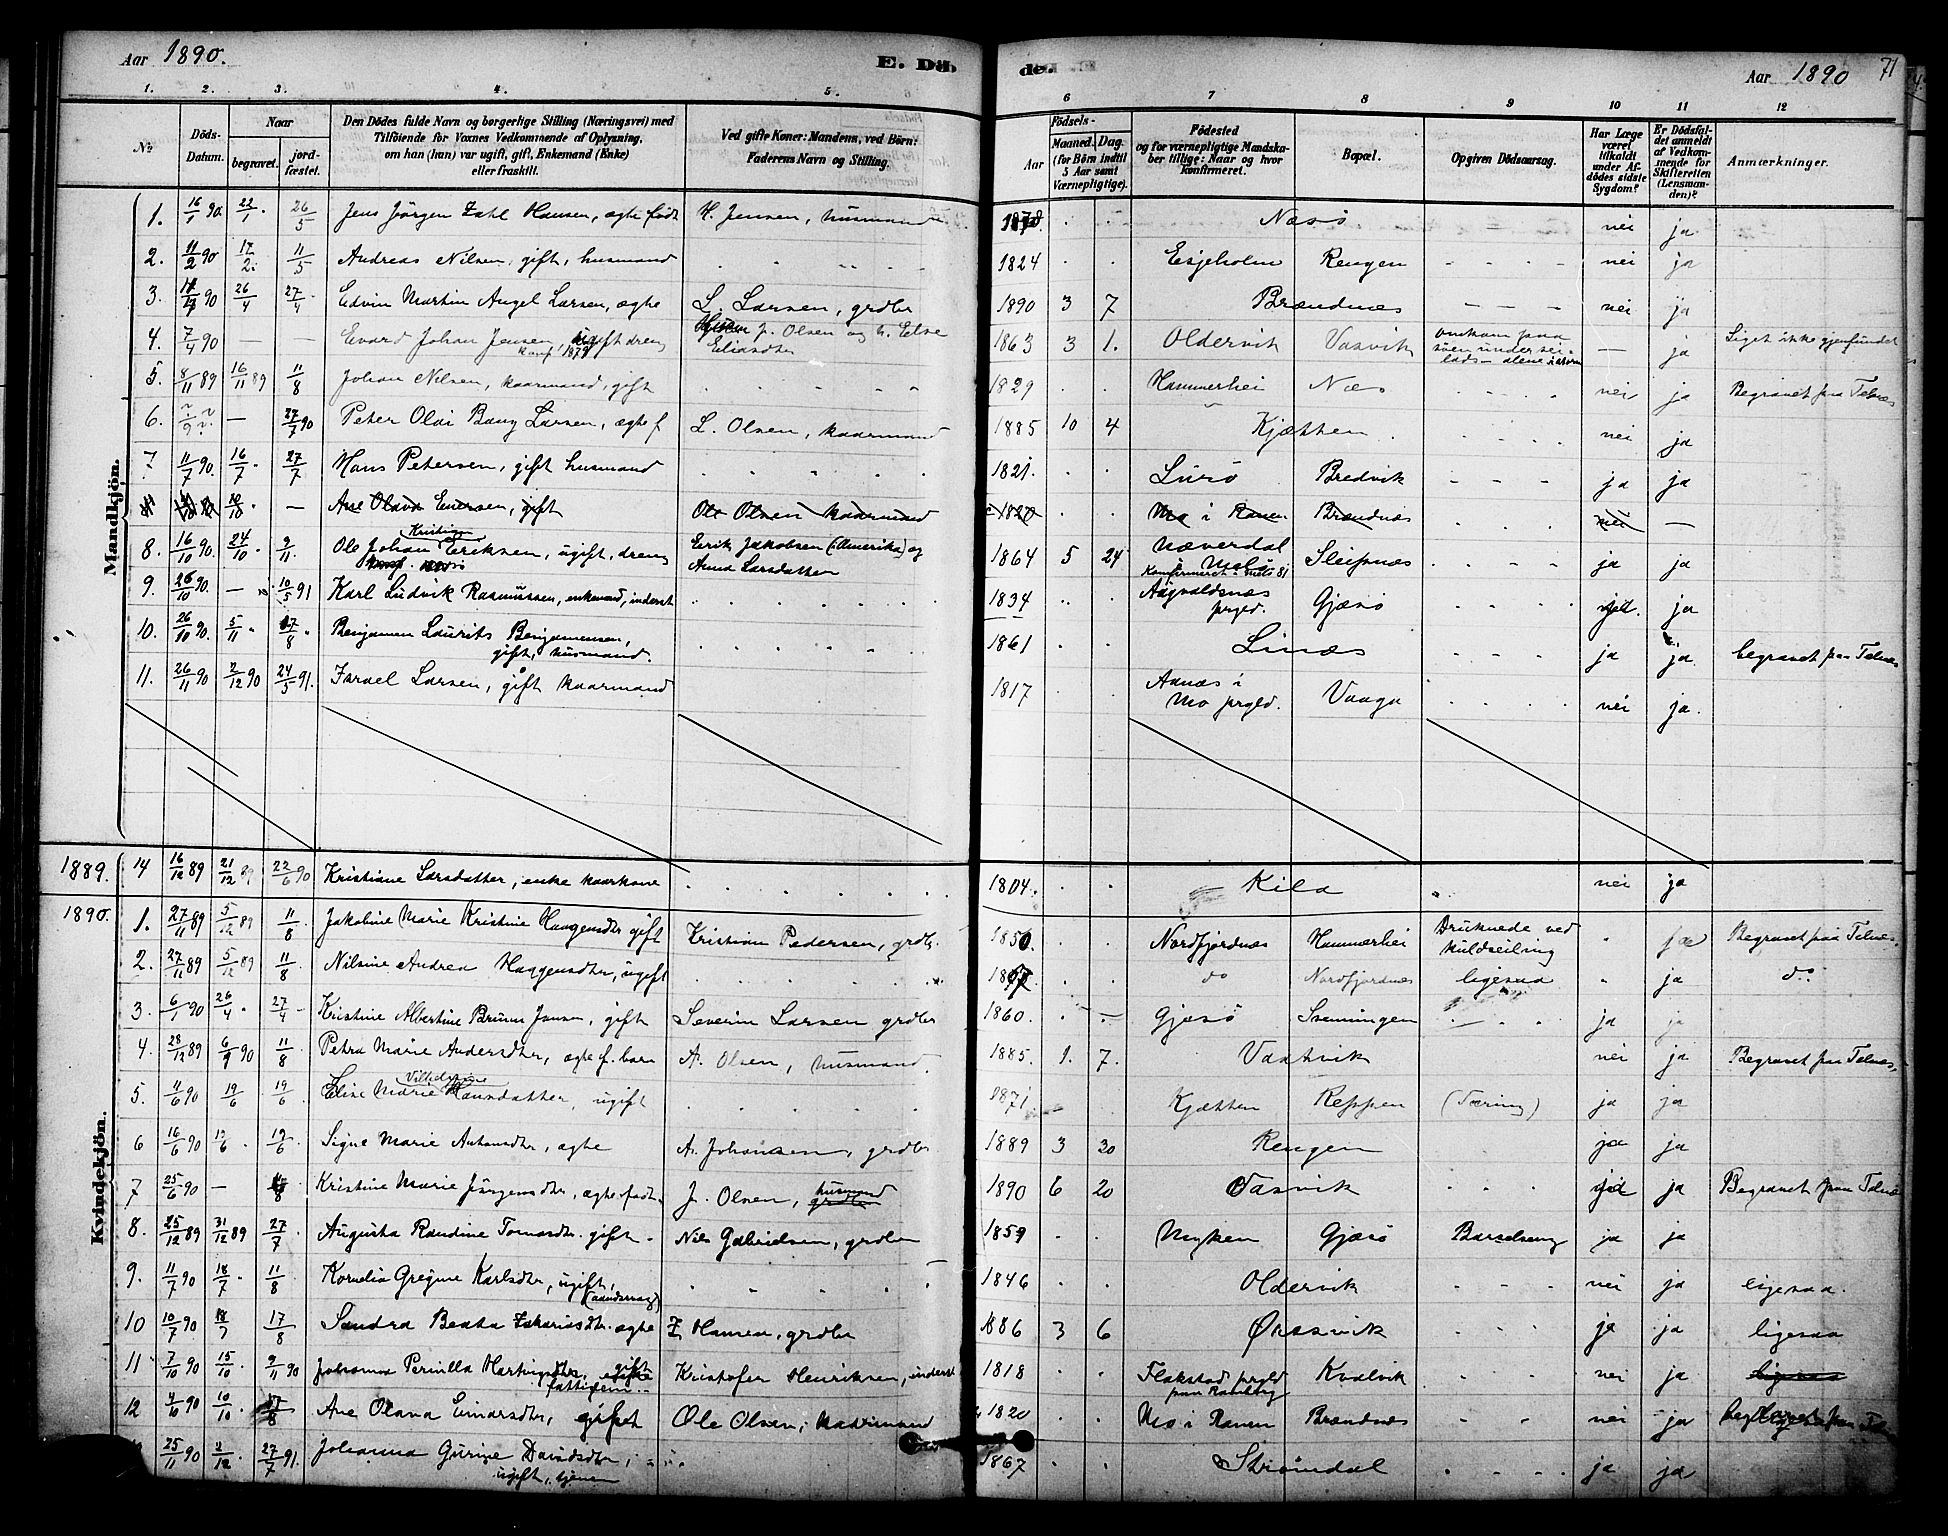 Aar 1890.
E. Döde.
Aar 1890
71
1. 2. 3. 4. 5. 6 7 8 9 10 11 12
No
Döds-Datum.
Naar
begravet.
jordfæstet.
Den Dödes fulde Navn og borgerlige Stilling (Næringsvei) med
Tilföiende for Voxnes Vedkommende af Oplysning,
om han (hun) var ugift, gift, Enkemand (Enke)
eller fraskilt.
Ved gifte Koner: Mandens, ved Börn:
Faderens Navn og Stilling.
Födsels-
Aar
Maaned. Dag.
(for Börn indtil
5 Aar samt
Værnepligtige).
Födested
og for værnepligtige Mandska-
ber tillige: Naar og hvor
konfirmeret.
Bopæl.
Opgiven Dödsaarsag.
Har Læge
været
tilkaldt
under Af-
dödes sidste
Sygdom?
Er Dödsfal-
det anmeldt
af Vedkom-
mende for
Skifteretten
(Lensman-
den)?
Anmærkninger.
Mandkjön.
1. 16/1 90. 22/1 26/5 Jens Jörgen Zahl Hansen, ægte født H. Jensen, husmand Næsö nei ja
2. 11/2 90 17/2 11/5 Andreas Nilsen, gift, husmand 1824 Esjeholm Rengen nei ja
3. 90 26/4 27/4 Edvin Martin Angel Larsen, ægte L. Larsen, grdbr 1890 3 7 Brændnæs nei ja
4. 7/4 90 — — Evard Johan Jensen, ugift dreng J. Olsen og h. Else 1863 3 1. Oldervik Vasvik omkom paa — ja Liget ikke gjenfundet
konf. 1879 Eliasdtr söen under sei-
lads — alene i
5. 8/11 89 16/11 89 11/8 Johan Nilsen, kaarmand, gift 1829 Hammerhei Næs nei ja Begravet paa Telnæs
6. — 27/7 90 Peter Olai Bang Larsen, ægte f L. Olsen, kaarmand 1885 10 4 Kjætten nei ja
7. 11/7 90. 16/7 27/7 Hans Petersen, gift husmand 1821. Lurö Bredvik ja ja
10/8 — Ane Olava Enersen, gift Ole Olsen kaarmand 1820 Mo i Ranen Brændnæs nei —
8. 16/10 90. 24/10 9/11. Ole Johan Kristian Eriksen, ugift, dreng Erik Jakobsen (i Amerika) og 1864 5 24 Næverdal Sleipnæs ja ja
Anna Larsdatter i Melö
Konfirmeret
9. 26/10 90. — 10/5 91 Karl Ludvik Rasmussen, enkemand, inderst 1834 Aagvaldsnæs Gjæsö ja
prgld.
10. 26/10 90. 5/11 17/8 Benjamen Laurits Benjamensen, 1861 Linæs ja ja begravet paa Telnæs
gift, husmand.
11. 26/11 90 2/12 90 24/5 91. Israel Larsen, gift kaarmand 1817 Aanæs i Vaaga nei ja.
Mo prgld.
Kvindekjön.
1889. 14 16/12 89 21/12 89 22/6 90 Kristiane Larsdatter, enke kaarkone 1804. Kila nei ja
1890. 1. 27/11 89 5/12 89 11/8 Jakobine Marie Kristine Haagensdtr gift Kristian Pedersen, grdbr. 1850. Nordfjordnæs Hammerhei Druknede ved ja Begravet paa Telnæs.
kuldseiling
2. 27/11 89 5/12 89 11/8 Nilsine Andrea Haagensdtr, ugift do Nordfjordnæs ligesaa ja do
3. 6/1 90 26/4 27/4 Kristine Albertine Bruun Jensen, gift Severin Larsen grdbr 1860. Gjæsö Svenningen ja ja
4. 28/12 89 6/9 90 11/8 Petra Marie Andersdtr, ægte f. barn A. Olsen, husmand. 1885. 1. 7. Vastvik nei ja Begravet paa Telnæs.
5. 4/6 90 19/6 19/6. Elise Marie Hansdatter, ugift 1871 Kjætten Reppen (Tæring) ja ja
6 16/6 90 19/6 19/6. Signe Marie Antonsdtr, ægte A. Johansen, grdbr 1889 3 20 Rengen ja ja
7 25/6 90 — Kristine Marie Jörgensdtr, ægte født. J. Olsen, husmand grdbr 1890 6 20 Vasvik ja Begravet paa Telnæs
8. 25/12 89 31/12 89 27/7 Augusta Randine Tomasdtr. gift Nils Gabrielsen, grdbr 1859 Myken Gjæsö Barselseng ja ja
9. 11/7 90 18/7 11/8 Kornelia Gregine Karlsdtr, ugift, 1846 Oldervik nei ja ligesaa.
(aandssvag)
10 10/7 90 18/7 17/8 Sandra Beata Zakariasdtr. ægte Z. Hansen, grdbr 1886 3 6 Ørasvik ja ja ligesaa
11 7/10 90 15/10 9/11 90 Johanna Pernilla Hartvigsdtr, gift Kristofer Henriksen, inderst 1818 Flakstad prgld Kvalvik nei ja ligesaa
fattiglem paa Ramberg
12 4/6 90 10/10 17/8 Ane Olava Einarsdtr, gift Ole Olsen, kaarmand 1820 Mo i Ranen Brændnæs nei ja
25/11 90 2/12 27/7 91. Johanna Gurine Davidsdtr, 1867 Strömdal ja ja
ugift, tjener